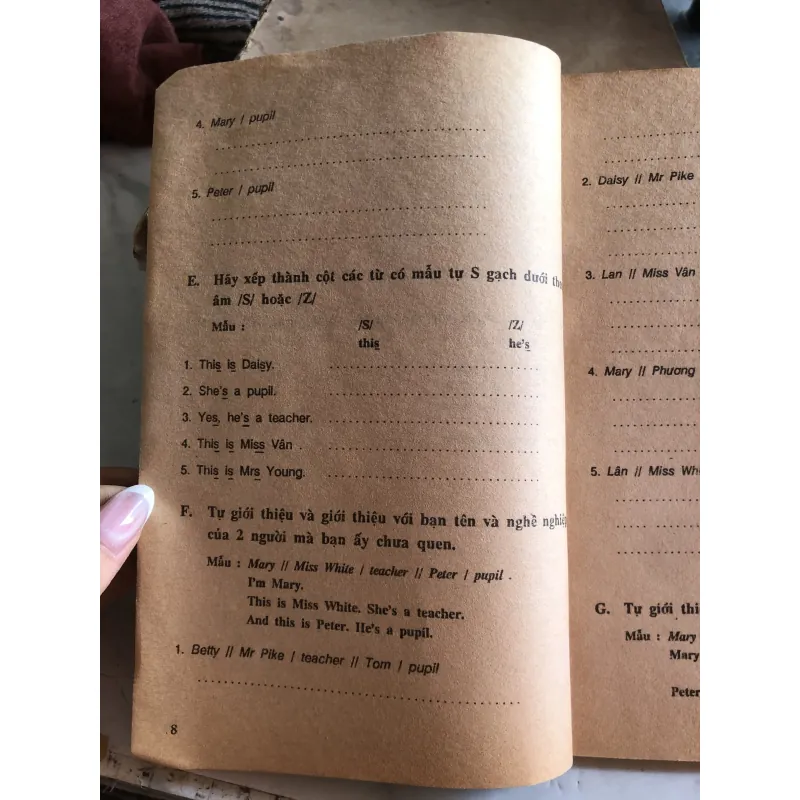 4. Mary / pupil
5. Peter / pupil
E. Hãy xếp thành cột các từ có mẫu tự S gạch dưới
âm /S/ hoặc /Z/
Mẫu : /S/ /Z/
this he's
1. This is Daisy.
2. She's a pupil.
3. Yes, he's a teacher.
4. This is Miss Vân .
5. This is Mrs Young.
F. Tự giới thiệu và giới thiệu với bạn tên và nghề
của 2 người mà bạn ấy chưa quen.
Mẫu : Mary // Miss White / teacher // Peter / pupil .
I'm Mary.
This is Miss White. She's a teacher.
And this is Peter. He's a pupil.
1. Betty // Mr Pike / teacher // Tom / pupil
8
2. Daisy // Mr Pike
3. Lan // Miss Vân
4. Mary // Phương
5. Lân // Miss
G. Tự giới
Mẫu : Mary
Mary
Peter